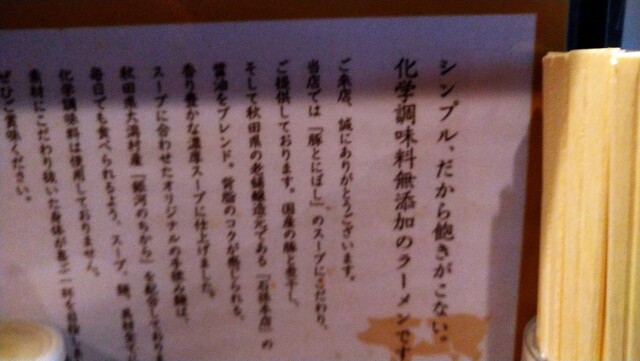 シンプル、だから飽きがこない。
化学調味料無添加のラーメンです
ご来店、誠にありがとうございます。
当店では『豚とにぼし』のスープにこだわり、
ご提供しております。国産の豚と煮干し、
そして秋田県の老舗醸造元である『石孫本店』の
醤油をブレンド。背脂のコクが感じられる、
香り豊かな濃厚スープに仕上げました。
スープに合わせたオリジナルの手揉み麺は、
秋田県大潟村産『銀河のちから』を配合しており
毎日でも食べられるよう、スープ、麺、具材全て
化学調味料は使用しておりません。
素材にこだわり抜いた身体が喜ぶ一杯を目指し
ぜひご賞味ください。